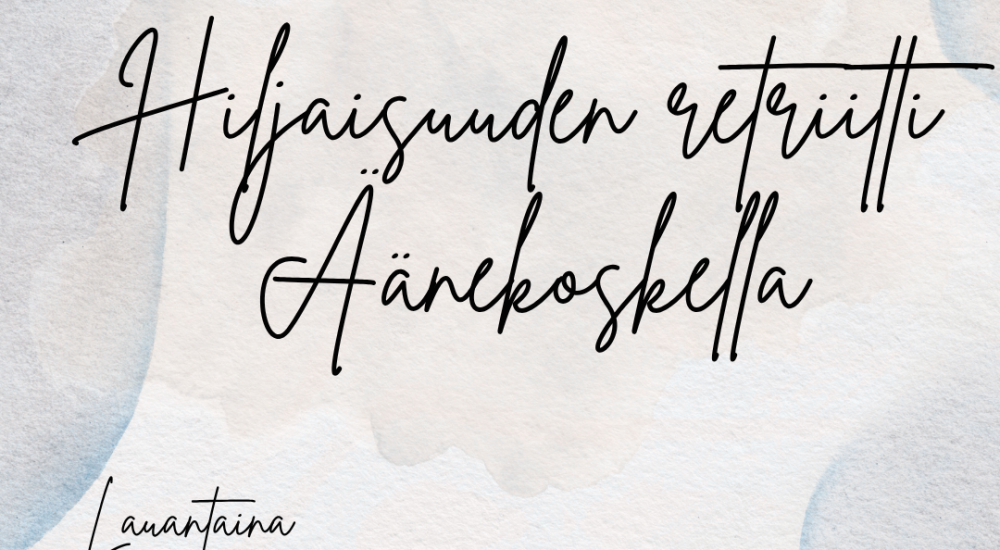 Hiljaisuuden retriitti
Äänekoskella
Lauantaina